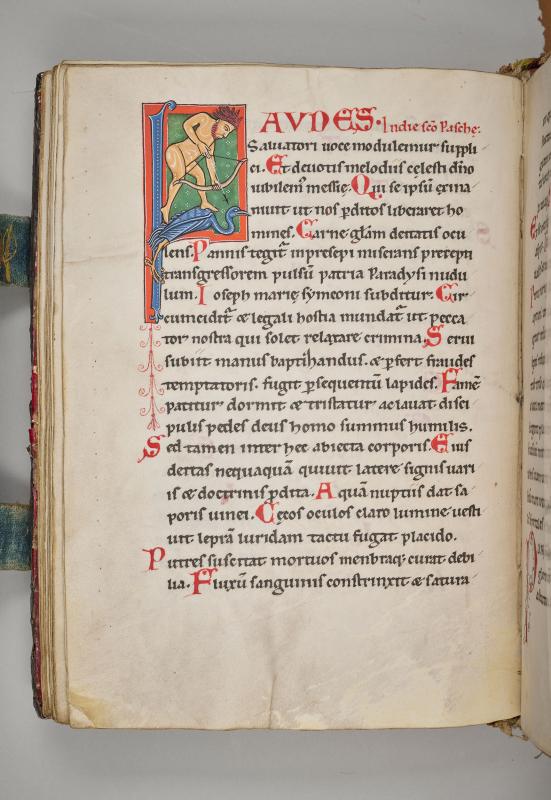 LAVDES. In die sc̄o Pasche:
Saluatori uoce modulemur suppli
ci. Et deuotis melodiis cęlesti dn̄o
iubilem̄ messię. Qui se ipsū exina
niuit ut nos p̄ditos liberaret ho
mines. Carne gl̄am deitatis ocu
lens. Pannis tegit̄ in presepi miserans precepti
transgressorem pulsū patria Paradysi nudu
lum. Ioseph marię symeoni subditur. Cir
cumcidit̄ & legali hostia mundat̄ ut pecca
tor nostra qui solet relaxare crimina. Serui
subiit manus baptizandus. & p̄fert fraudes
temptatoris. fugit p̄sequentū lapides. Famē
patitur dormit & tristatur ac lauat disci
pulis pedes deus homo summus humilis.
Sed tamen inter hec abiecta corporis. Eius
deitas nequaquā quiuit latere signis uari
is & doctrinis p̄dita. Aquā nuptiis dat sa
poris uinei. Cęcos oculos claro lumine uesti
uit leprā luridam tactu fugat placido.
Putres suscitat mortuos menbraq; curat debi
lia. Fluxū sanguinis constrinxit & satura